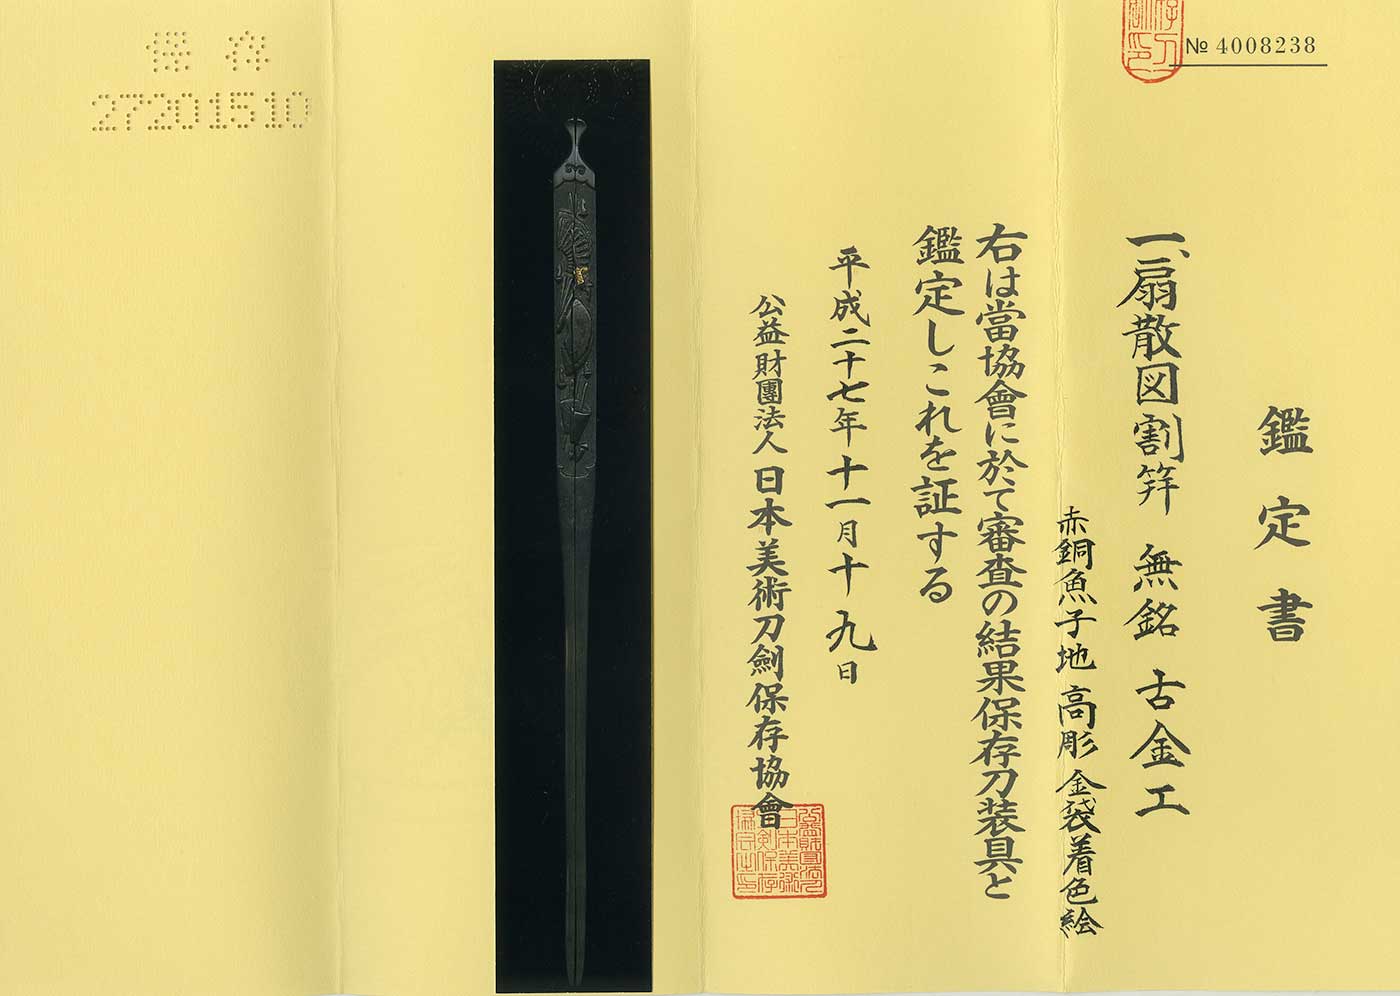 № 4008238
鑑定書
一、扇散図割笄 無銘 古金工
赤銅魚子地 高彫 金袋着色絵
右は當協會に於て審査の結果保存刀装具と
鑑定しこれを証する
平成二十七年十一月十九日
公益財團法人 日本美術刀劍保存協會
保存
27201510